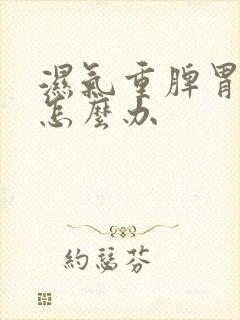 濕氣重脾胃
怎麼办
約瑟芬